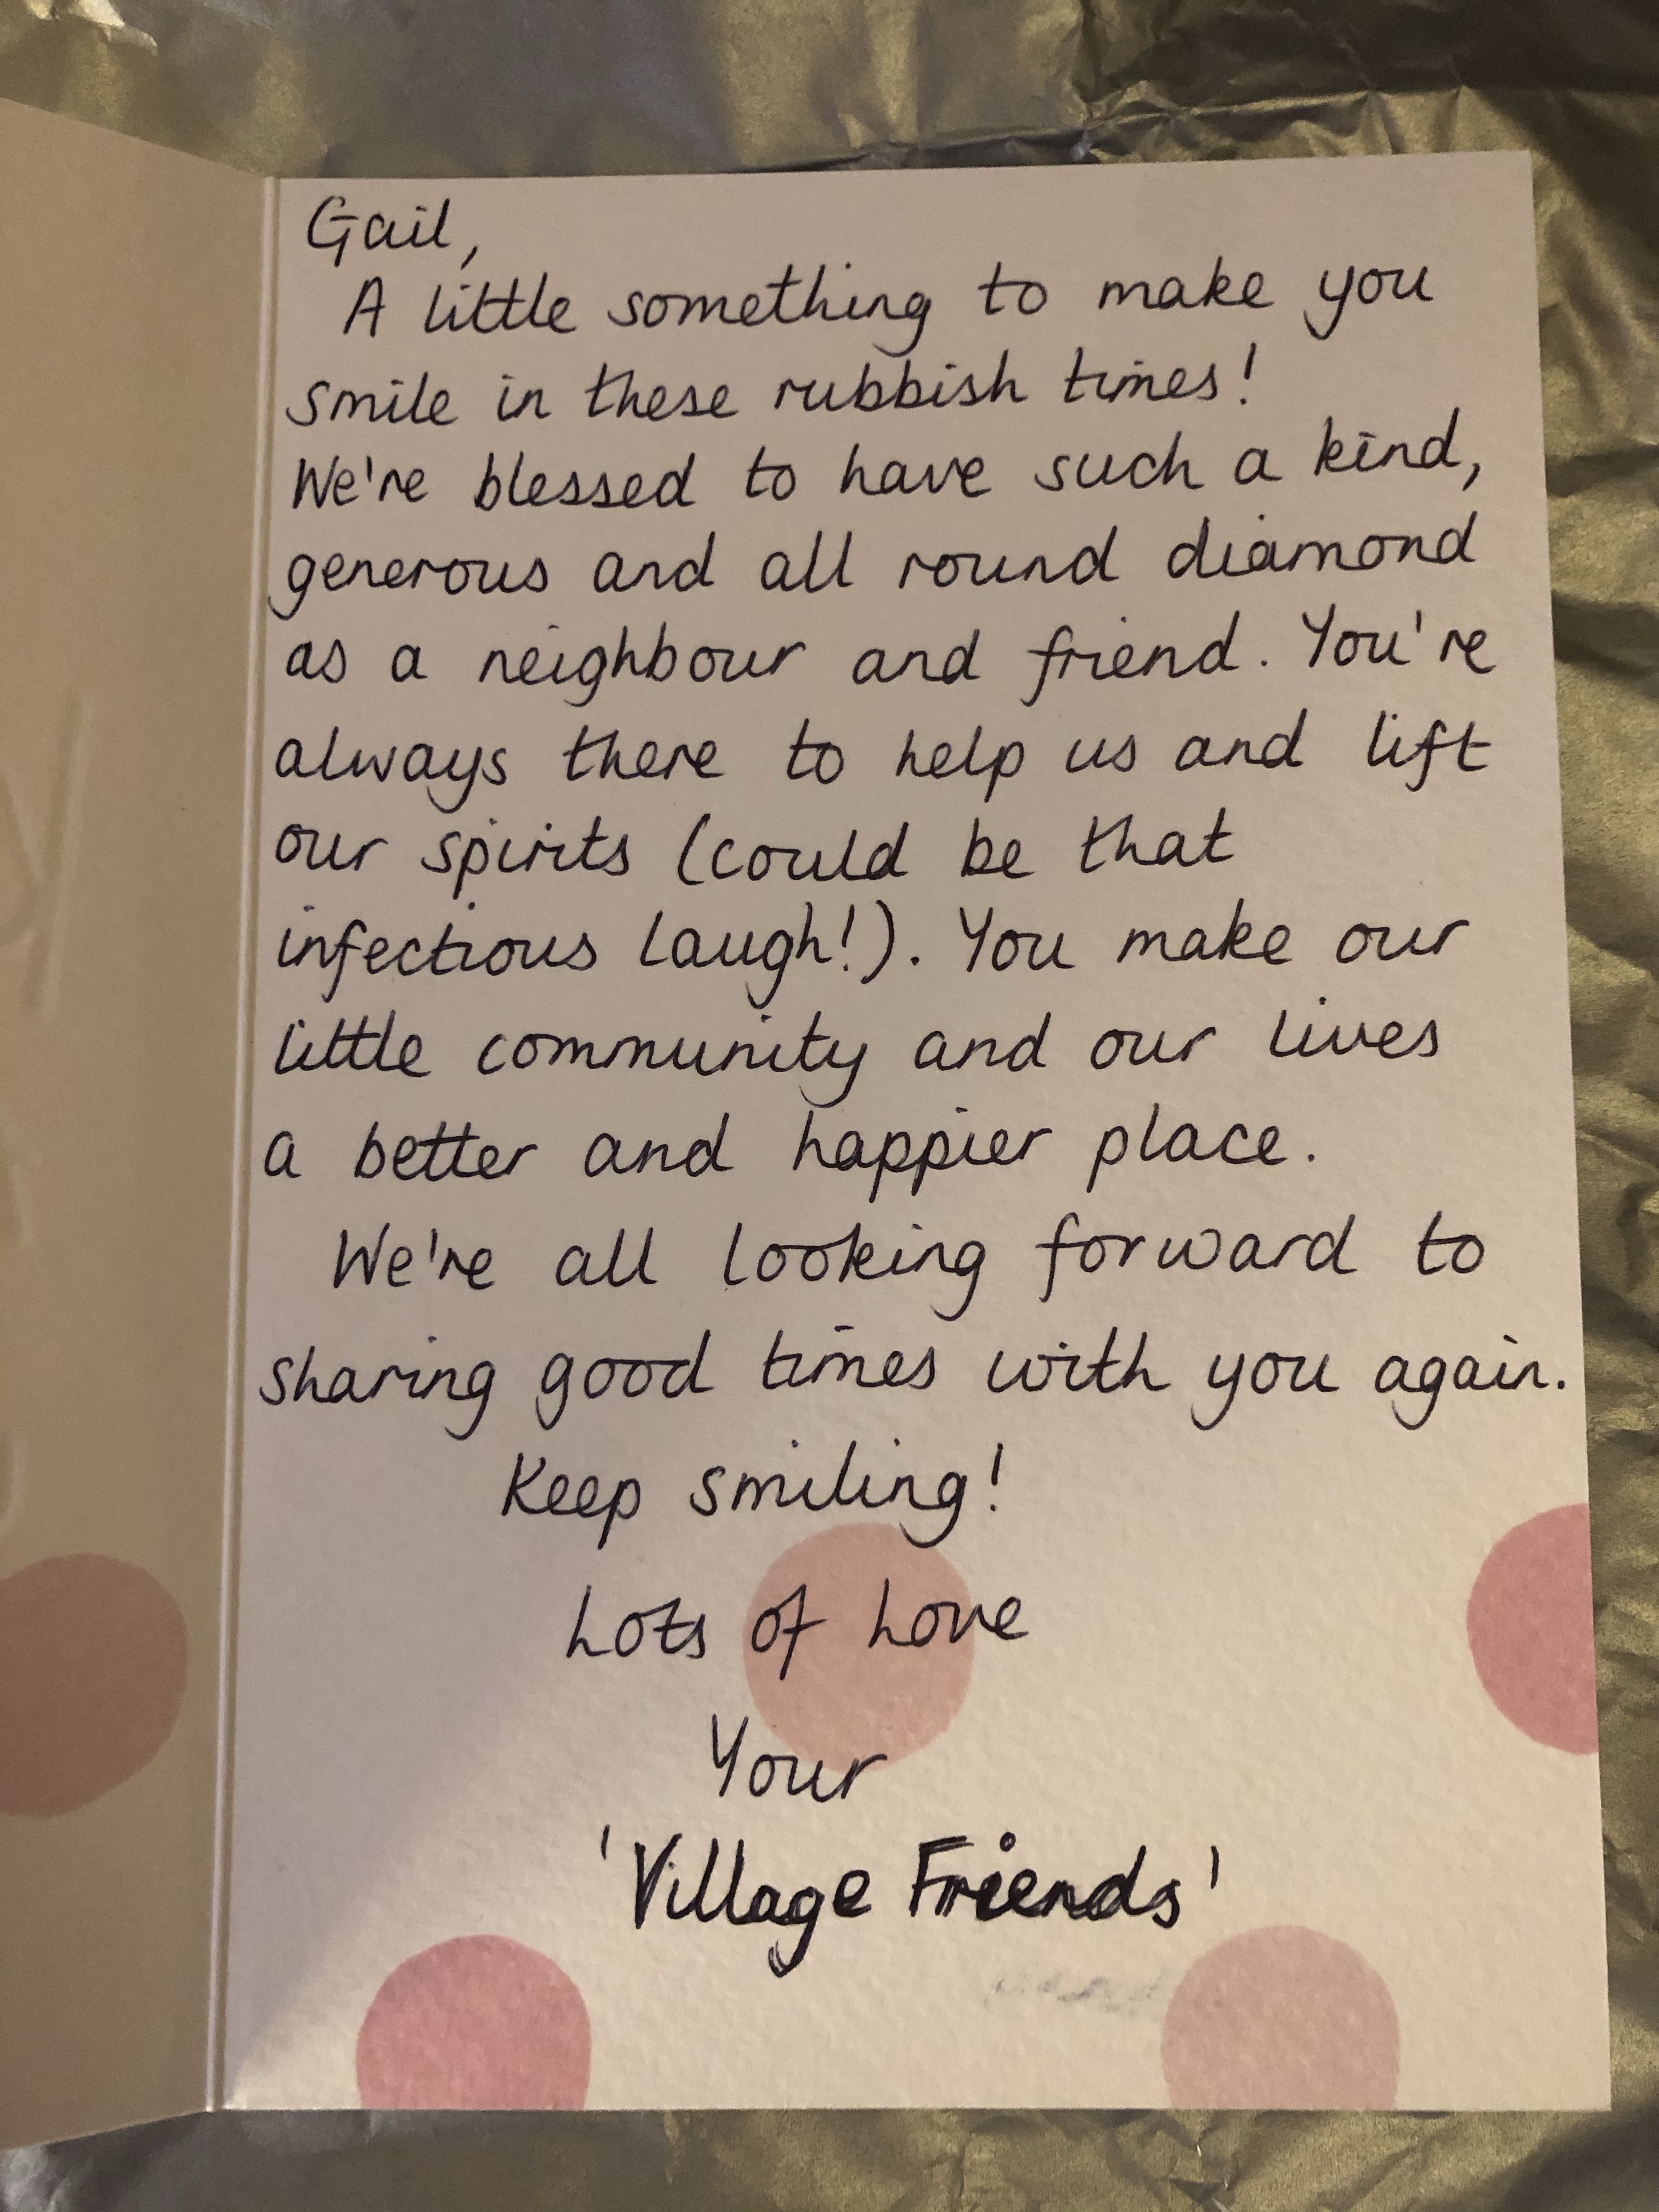 Gail,
A little something to make you
smile in these rubbish times!
We're blessed to have such a kind,
generous and all round diamond
as a neighbour and friend. You're
always there to help us and lift
our spirits (could be that
infectious laugh!). You make our
little community and our lives
a better and happier place.
We're all looking forward to
sharing good times with you again.
Keep smiling!
Lots of Love
Your
'Village Friends'